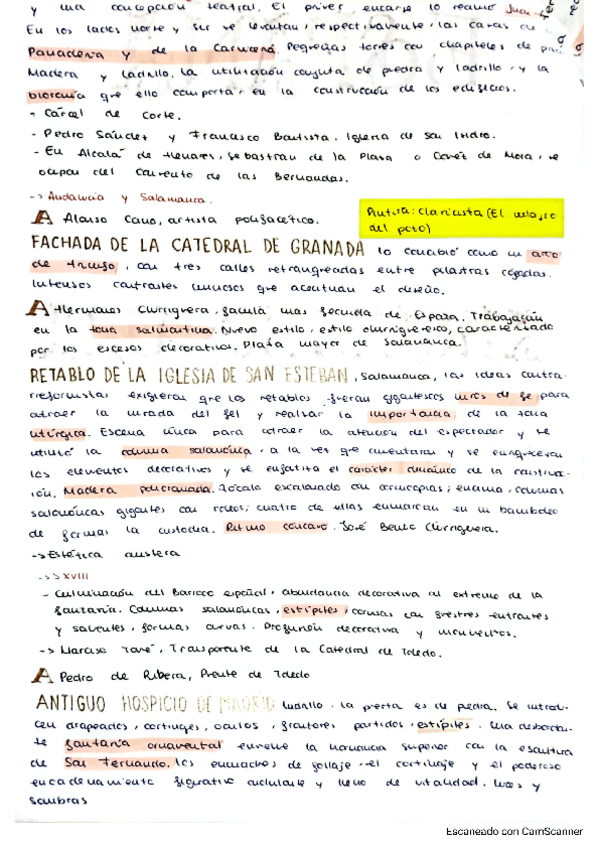 y una concepción teatral. El primer, encarga lo realiza Juan
En los lados norte y sur se levantan, respectivamente, las casas de
Panadería y de la Carnicería. Pequeñas torres con chapiteles de
Madera y ladrillo. La utilización conjunta de piedra y ladrillo, y la
bicromía que ello comporta, en la construcción de los edificios.
- Cárcel de Corte.
- Pedro Sánchez y Francisco Bautista. Iglesia de San Isidro.
- En Alcalá de Henares, Sebastián de la Plaza o Gómez de Mora, se
ocupan del Convento de las Bernardas.
-> Andalucía y Salamanca.
A Alonso Cano, artista polifacético.
Pintura: claricista (El milagro
del pozo)
FACHADA DE LA CATEDRAL DE GRANADA lo concibió como un arco
de triunfo, con tres calles retranqueadas entre pilastras cajeadas.
Intensos contrastes lumínicos que acentúan el diseño.
A Hermanos Churriguera, familia mas fecunda de España. Trabajaban
en la zona salmantina. Nuevo estilo, estilo churrigueresco, caracterizado
por los excesos decorativos. Plaza mayor de Salamanca.
RETABLO DE LA IGLESIA DE SAN ESTEBAN, Salamanca, las ideas contra-
rreformistas exigieran que los retablos fueran gigantescos muros de fe para
atraer la mirada del fiel y realzar la importancia de la sala
litúrgica. Escena única para atraer la atención del espectador y se
utilizó la columna salomónica, a la vez que aumentaran y se enriquecieran
los elementos decorativos y se enfatiza el carácter dinámico de la construcc-
ión. Madera policromada. Zócalo escalonado con cornucopias; encima, columnas
salomónicas gigantes con roleos; cuatro de ellas enmarcan en un
de formas la custodia. Ritmo cóncavo. José Benito Churriguera.
-> Estética austera
-> S XVIII
- Culminación del Barroco español, abundancia decorativa al extremo de la
fantasía. Columnas salomónicas, estípites, cornisas con entrantes
y salientes, formas curvas. Profusión decorativa y
-> Narciso Tomé, Transparente de la Catedral de Toledo.
A Pedro de Ribera, Puente de Toledo
ANTIGUO HOSPICIO DE MADRID ladrillo. La puerta es de piedra. Se introdu-
cen drapeados, cortinajes, óculos, frontones partidos, estípites. Una desbordan-
te fantasía ornamental envuelve la hornacina superior con la escultura
de San Fernando. Los enmarques de follaje, el cortinaje y el poderoso
encadenamiento figurativo ondulante y lleno de vitalidad. luces y
sombras
Escaneado con CamScanner